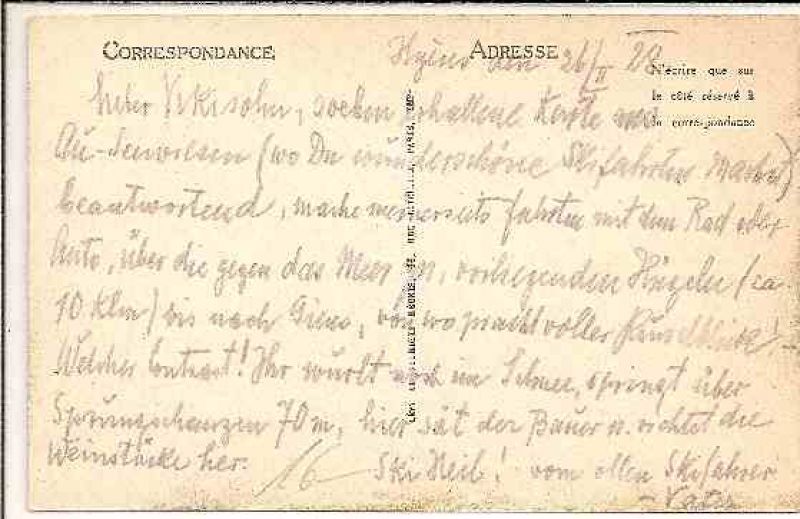 CORRESPONDANCE
ADRESSE
N'écrire que sur
le côté réservé à
la correspondance
Hyères den 26/II 28
Lieber Skisohn, soeben erhaltene Karte
Au-Seewiesen (wo Du wunderschöne Skifahrten machst)
beantwortend, mache meinerseits fahrten mit dem Rad oder
Auto, über die gegen das Meer vorliegenden Hügeln (ca
10 Klm) bis nach Giens, von wo prachtvoller
Welcher Contrast! Ihr im Schnee, springt über
Sprungschanzen 70 m, hier sät der Bauer u. richtet die
Weinstöcke her.
16
Ski Heil! vom alten Skifahrer
- Vater